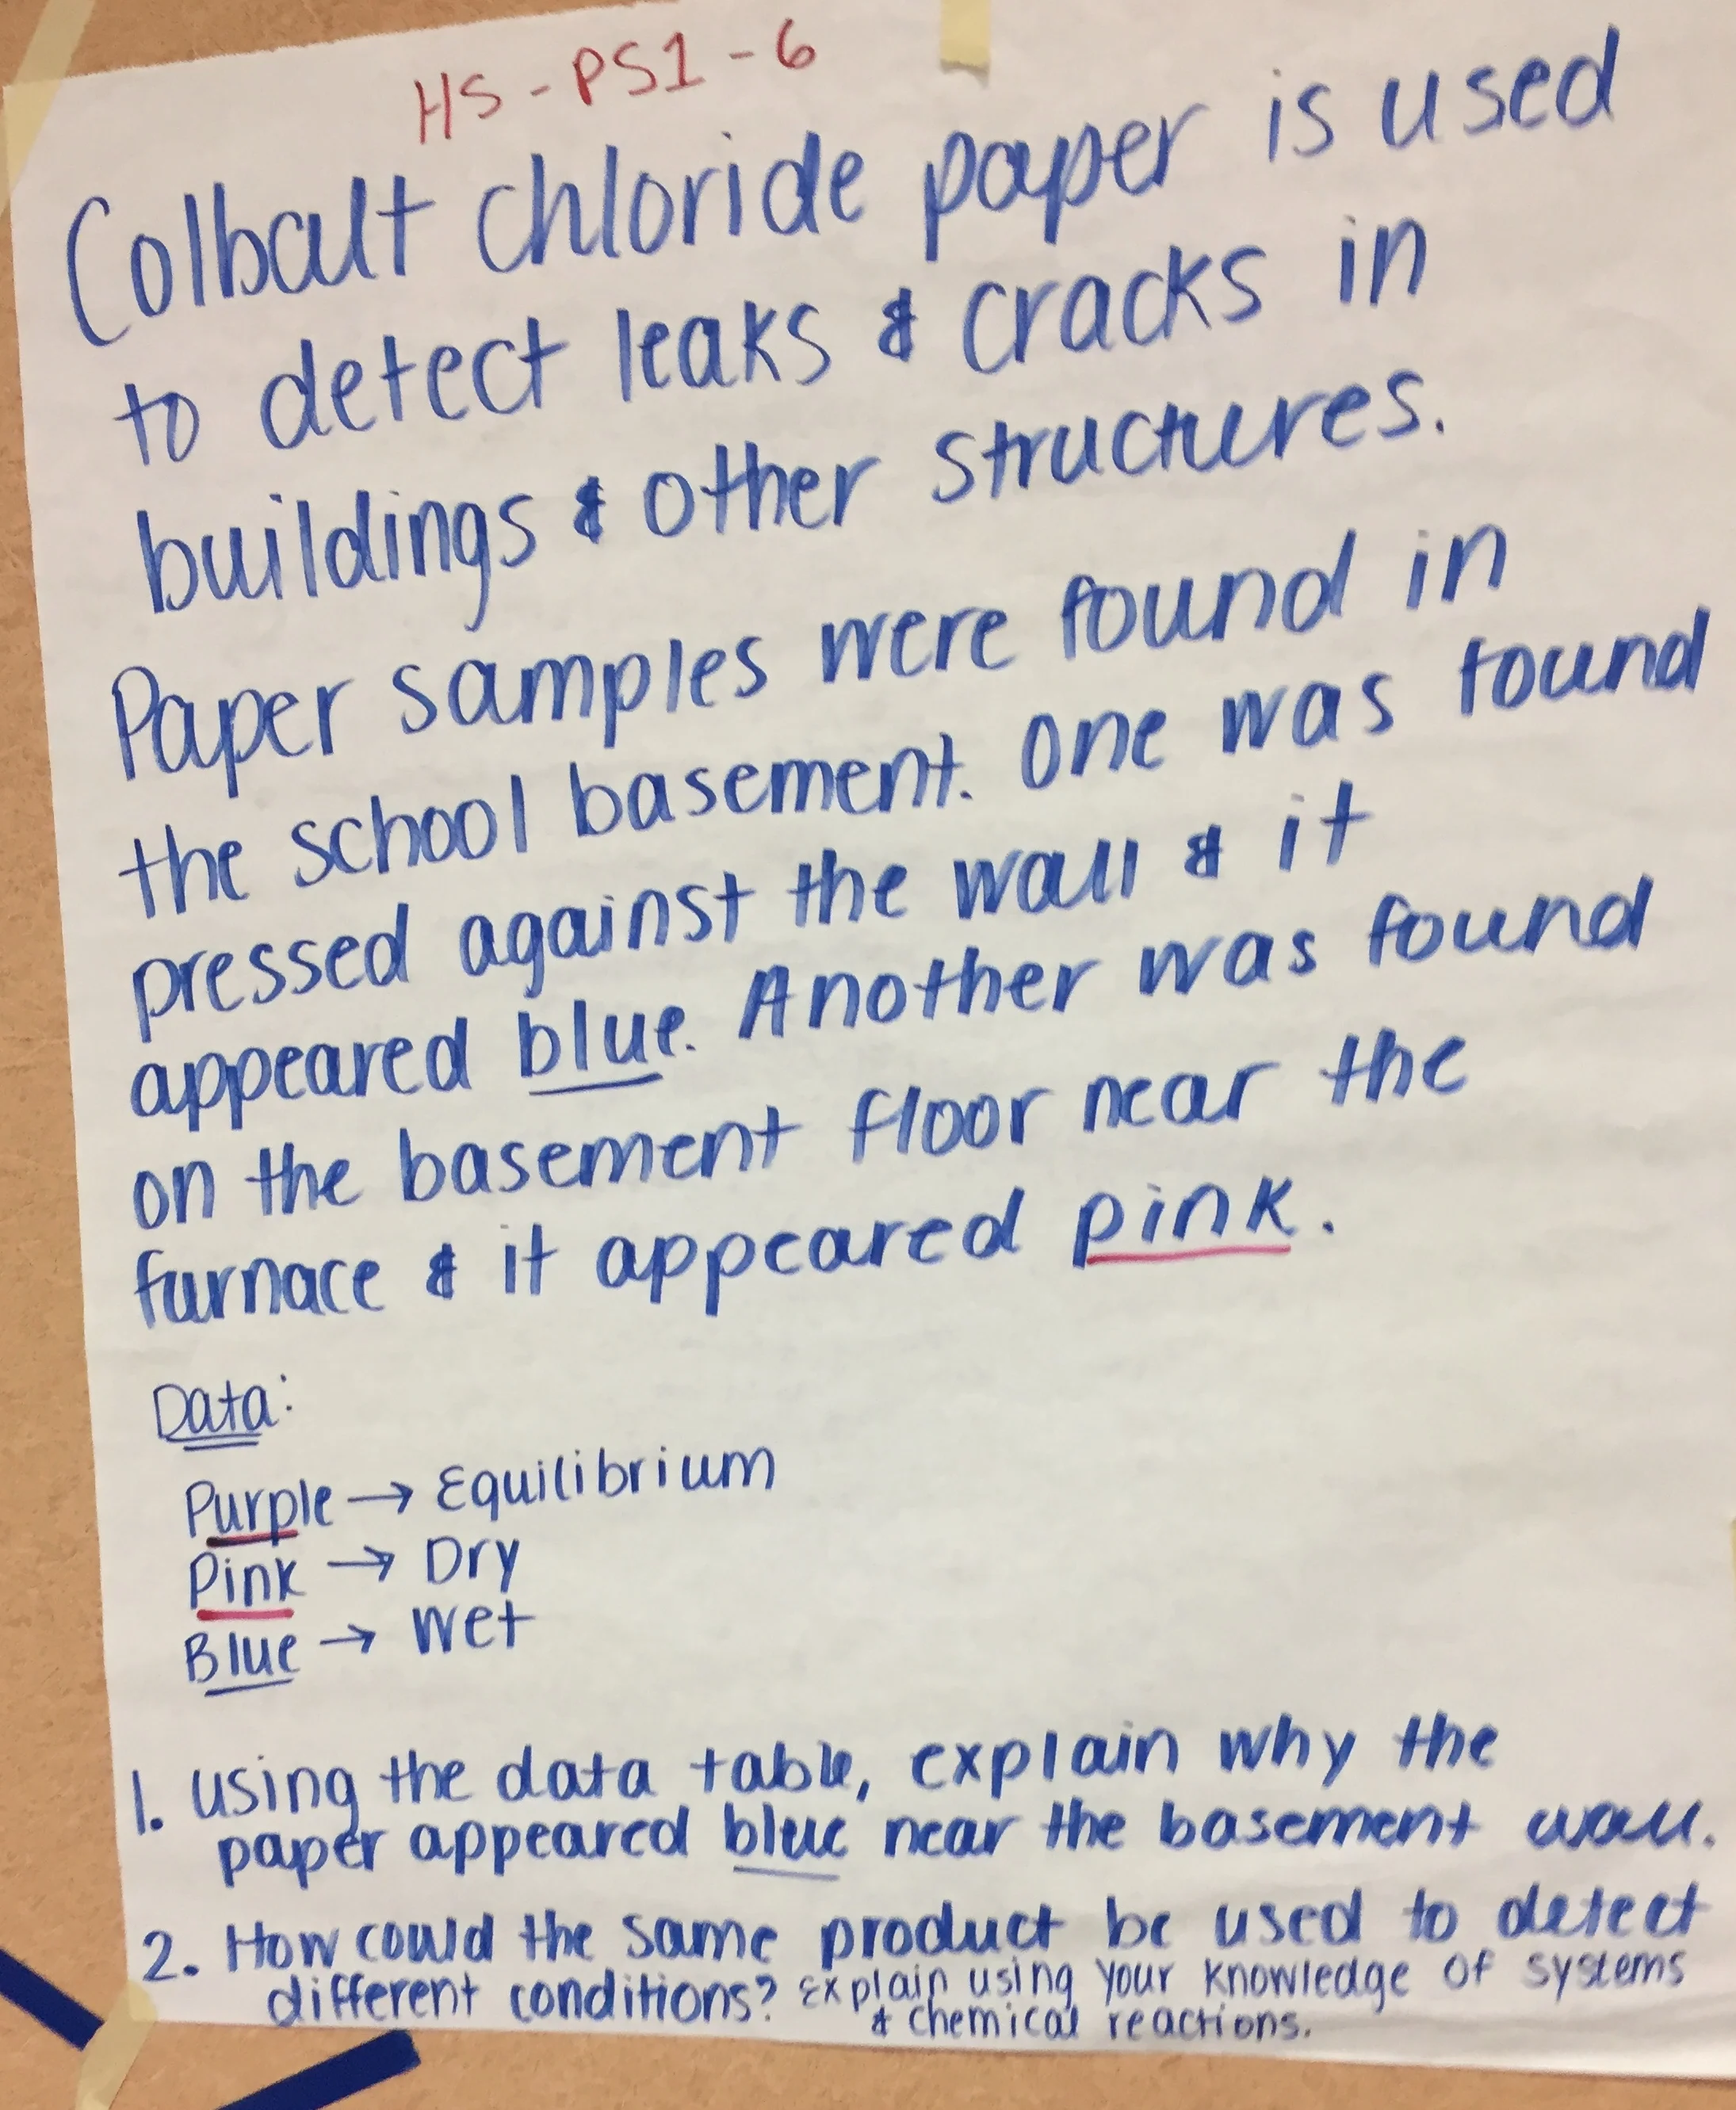 HS-PS1-6
Colbalt chloride paper is used
to detect leaks & cracks in
buildings & other structures.
Paper samples were found in
the school basement. One was found
pressed against the wall & it
appeared blue. Another was found
on the basement floor near the
furnace & it appeared pink.
Data:
Purple → Equilibrium
Pink → Dry
Blue → Wet
1. Using the data table, explain why the
paper appeared blue near the basement wall.
2. How could the same product be used to detect
different conditions? Explain using your knowledge of systems
& chemical reactions.